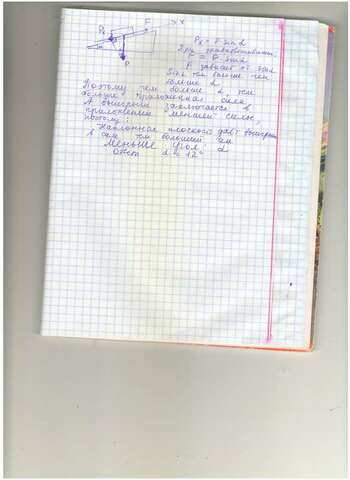 F
Px
P
Px = P sin α
При равновесии
F = P sin α
F зависит от sin α
Sin α тем больше чем
больше α
Поэтому чем больше α, тем
больше приложенная сила
А выигрыш заключается в
приложении меньшей силы,
поэтому:
Наклонная плоскость даёт выигрыш
в силе тем больший чем
меньше угол α
Ответ α = 12°